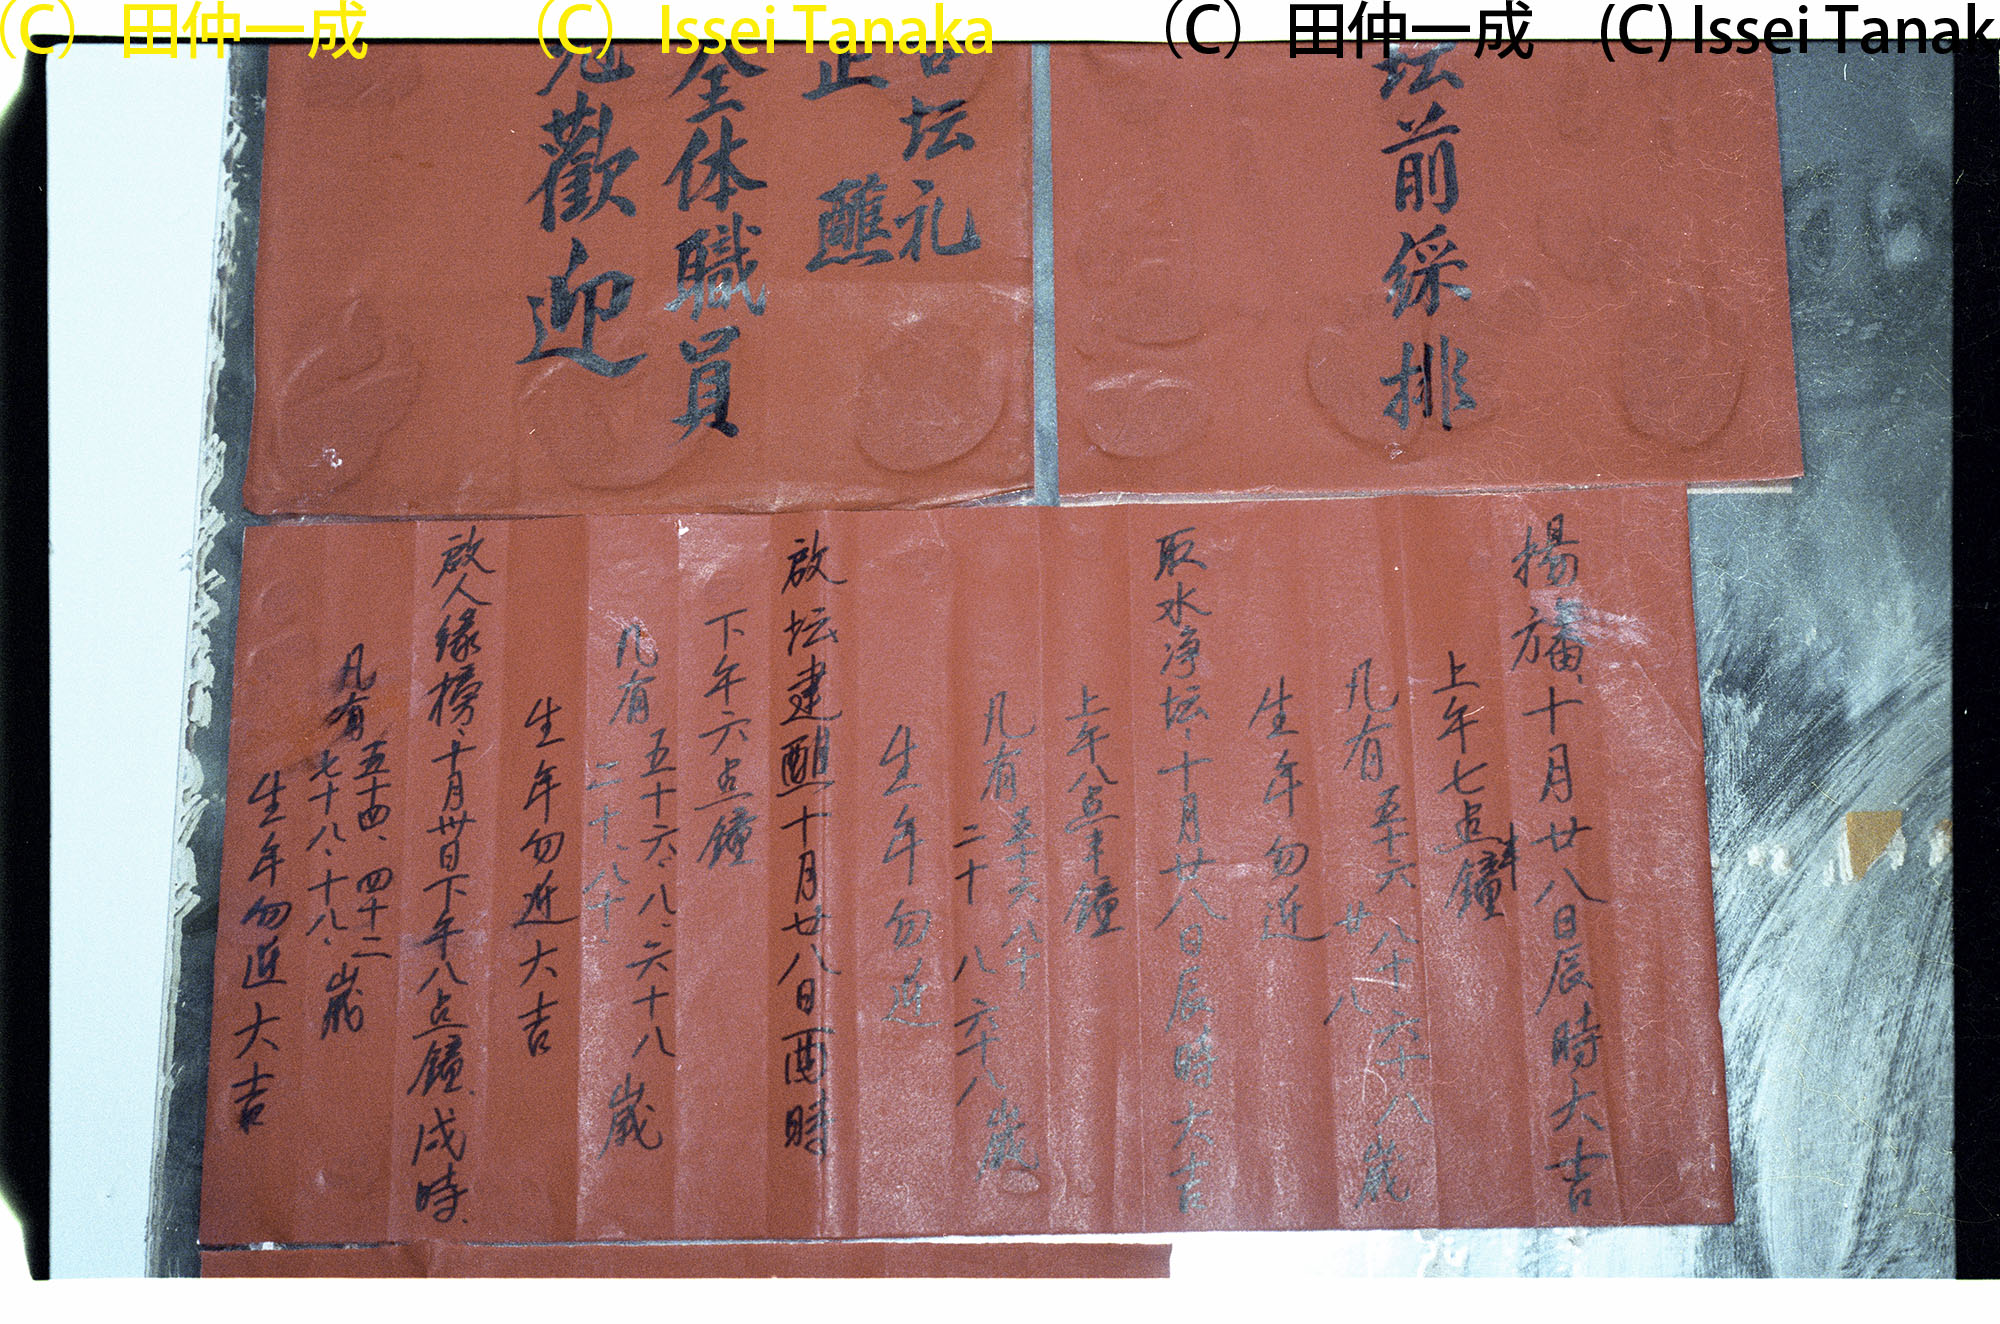 (C) 田仲一成
(C) Issei Tanaka
(C) 田仲一成
(C) Issei Tanak
坛前綵排
坛礼
正醮
全体職員
歡迎
揚旛十月廿八日辰時大吉
上午七点半鐘
凡有五十六八十六十八歲
廿八
生年勿近
取水净坛、十月廿八日辰時大吉
上午八点半鐘
凡有五十六八十
二十八六十八歲
生年勿近
啟坛建醮十月廿八日酉時
下午六点鐘
凡有五十六、八、六十八歲
二十、八十、
生年勿近大吉
啟人缘榜、十月卅日下午八点鐘、戌時
凡有五十四、四十二
七十八、十八、歲
生年勿近大吉